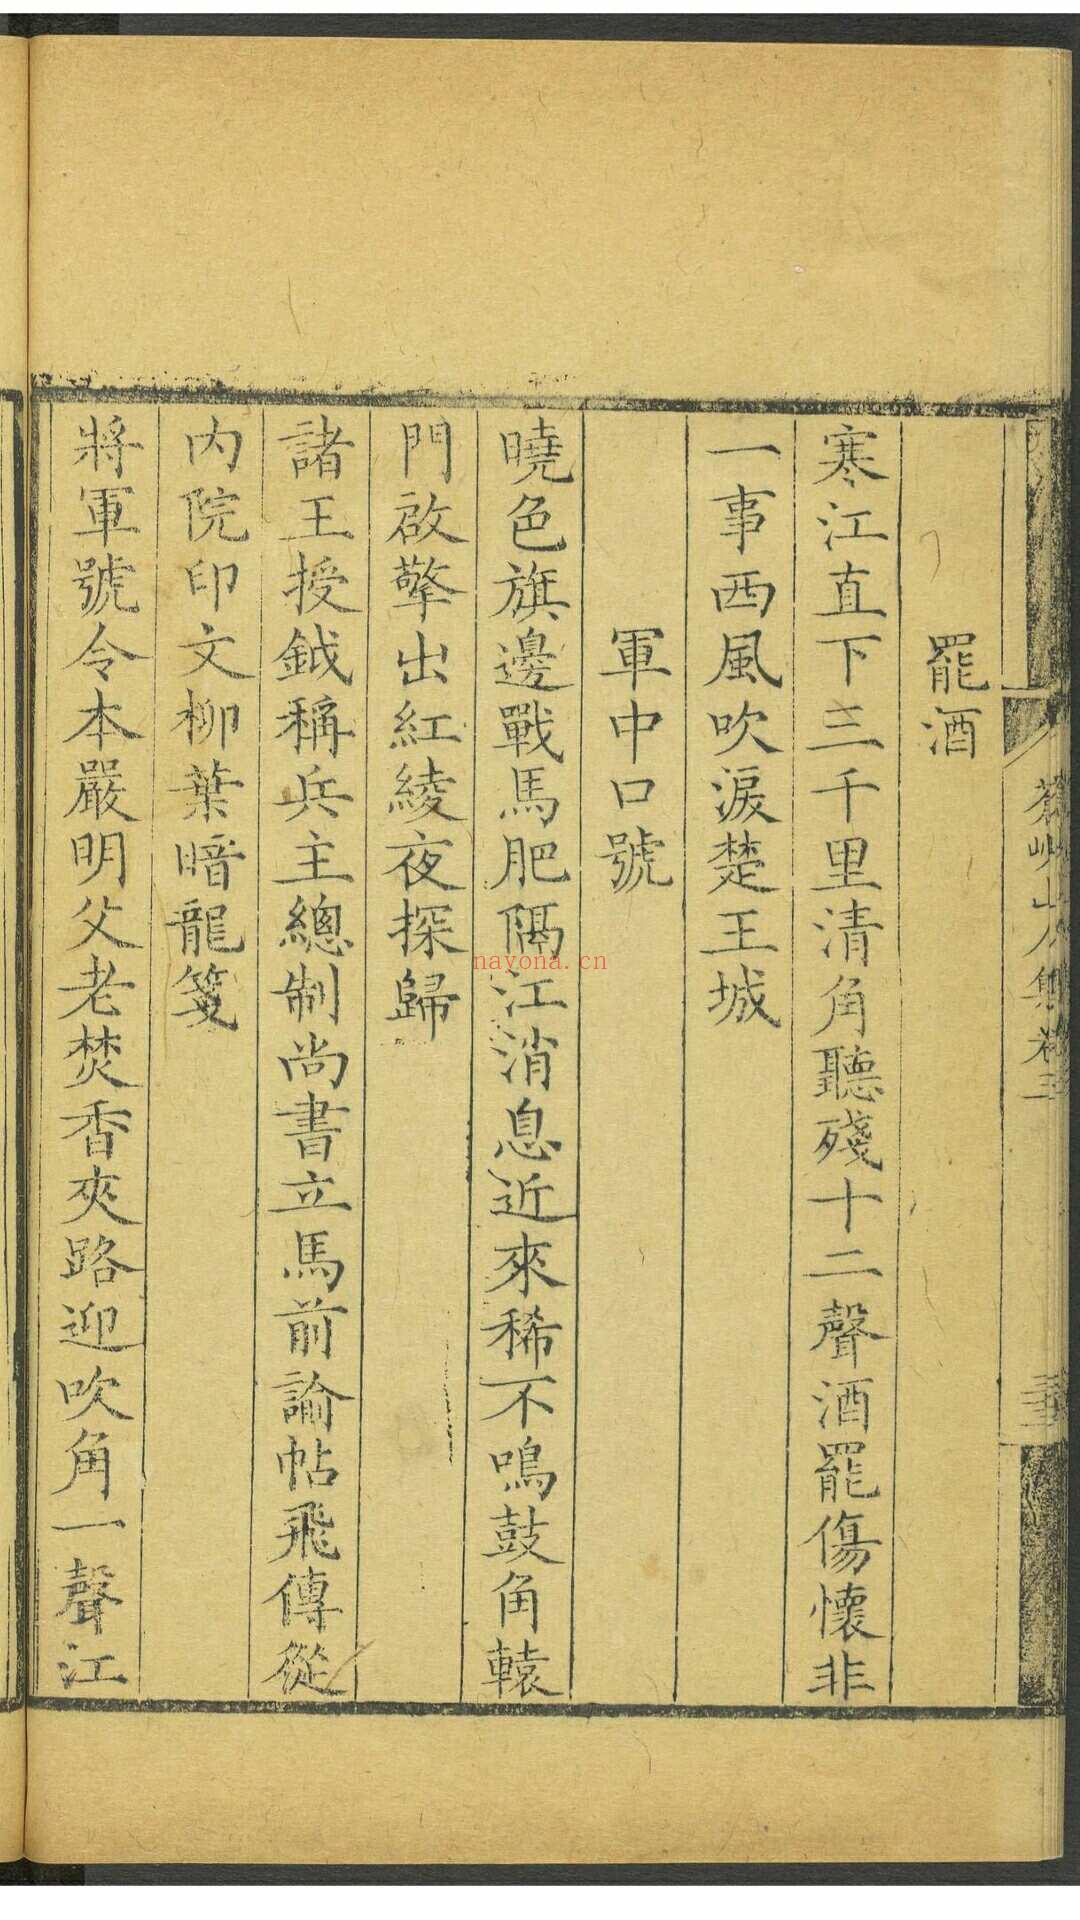 罷酒
寒江直下三千里清角聽殘十二聲酒罷傷懷非
一事西風吹淚楚王城
軍中口號
曉色旗邊戰馬肥隔江消息近來稀不鳴鼓角轅
門啟擎出紅綾夜探歸
諸王授鉞稱兵主總制尚書立馬前諭帖飛傳從
內院印文柳葉暗龍箋
將軍號令本嚴明父老焚香夾路迎吹角一聲江
山人集卷三
nayona.cn